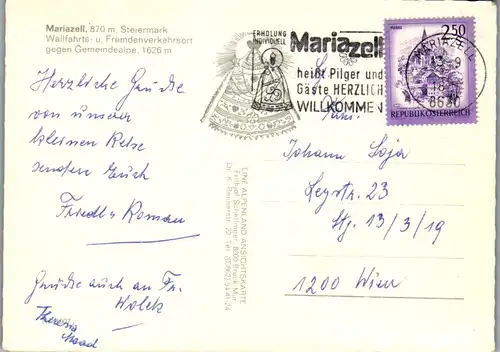 Mariazell, 870 m, Steiermark
Wallfahrts- u. Fremdenverkehrsort
gegen Gemeindealpe, 1626 m
Herzliche Grüße
von unserer
kleinen Reise
senden Euch
Friedl u. Roman
Grüße auch an Fr.
Theresia
EINE ALPENLAND ANSICHTSKARTE
ERHOLUNG
INDIVIDUELL
Mariazell
heißt Pilger und
Gäste HERZLICH
WILLKOMMEN
MARIAZELL
8630
2.50
REPUBLIK ÖSTERREICH
Fam.
Johann Soja
13/3/19
1200 Wien